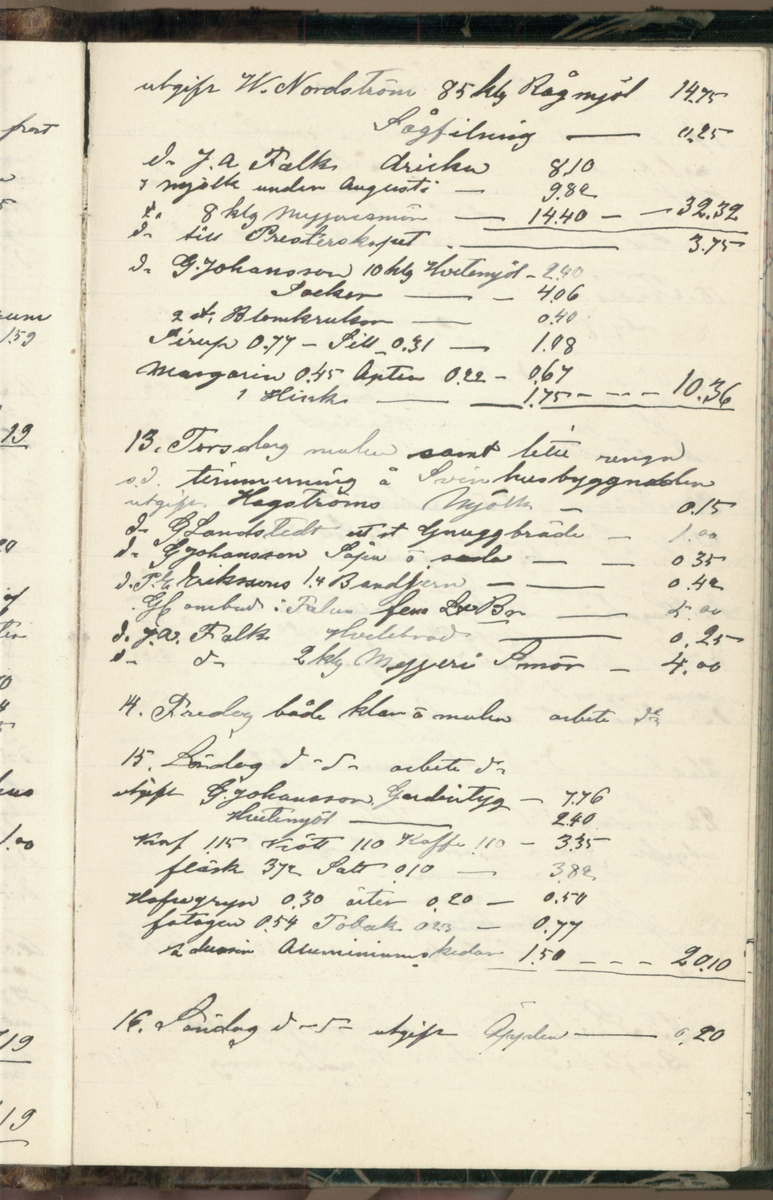 utgift W. Nordström 85 klg Rågmjöl 14.75
Sågfilning — 0.25
d- J. A. Falk dricka 8.10
mjölk under Augusti — 9.82
d- 8 klg Mejjerismör — 14.40 — 32.32
d- till Presterskapet — 3.75
d- G. Johansson 10 klg Hvetemjöl - 2.40
Socker — 4.06
2 st. Blomkrukor — 0.40
Sirup 0.77 — Sill 0.31 — 1.08
Margarin 0.45 0.22 - 0.67
1 Hink — 1.75 - - - 10.36
13. Torsdag mulen samt lite rengn
s.d. timmerning å Svinhusbyggnaden
utgift Hagströms Mjölk — 0.15
d- G Landstedt ett st Gnuggbräde — 1.00
d- G Johansson Såpa o soda — 0.35
d. Erikssons 1.4 Bandjern — 0.42
ombud i Falun fem — 5.00
d. J. A. Falk Hvetebröd — 0.25
d- d- 2 klg Mejjeri Smör — 4.00
14. Fredag både klar o mulen arbete d-
15. Lördag d- d- arbete d-
utgift G. Johansson Gardintyg — 7.76
Hvetemjöl — 2.40
Korf 1.15 Kött 1.10 Kaffe 1.10 — 3.35
fläsk 3.72 Salt 0.10 — 3.82
Hafregryn 0.30 ärter 0.20 — 0.50
fotogen 0.54 Tobak 0.23 — 0.77
dussin Aluminiumskedar 1.50 - - - 20.10
16. Söndag d- d- utgift Äpplen — 0.20
frost
1.59
19
1.00
19
19